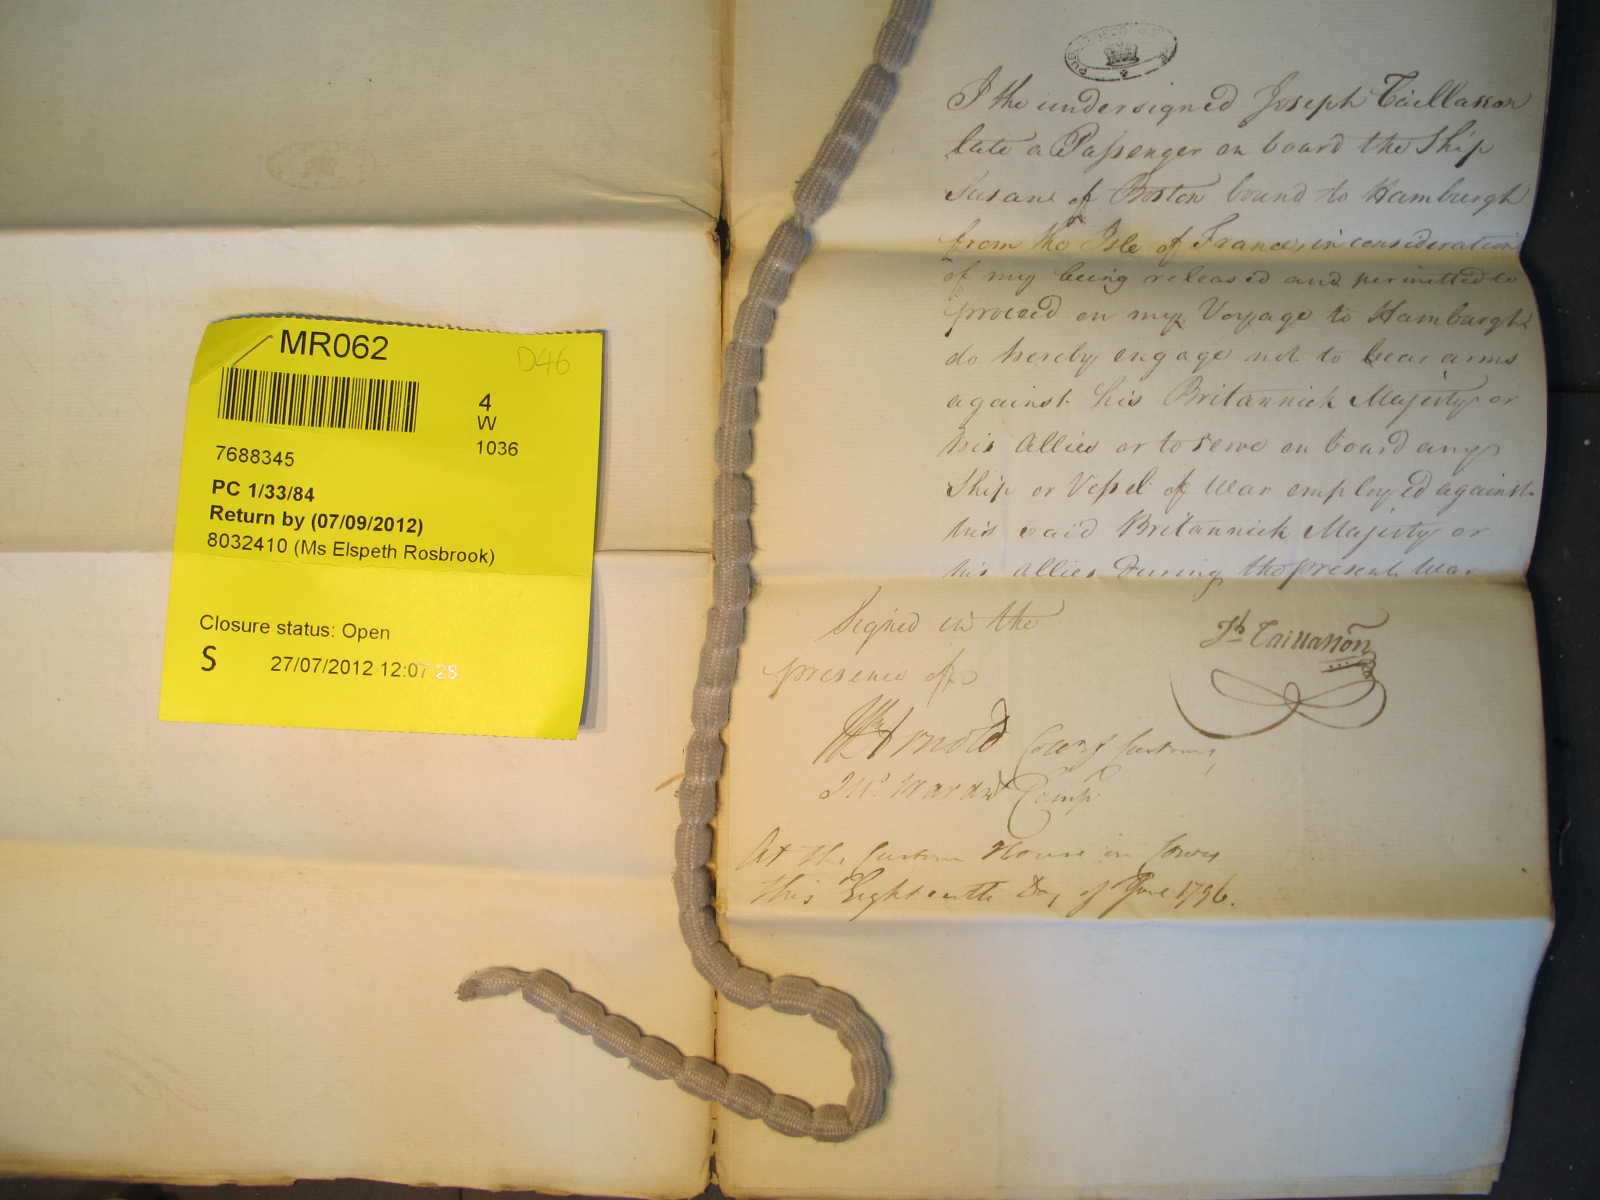 MR062
D46
4
W
1036
7688345
PC 1/33/84
Return by (07/09/2012)
8032410 (Ms Elspeth Rosbrook)
Closure status: Open
S 27/07/2012 12:07:28
I the undersigned Joseph Taillasson
late a Passenger on board the Ship
Susan of Boston bound to Hamburgh
from the Isle of France, in consideration
of my being released and permitted to
proceed on my Voyage to Hamburgh
do hereby engage not to bear arms
against his Britannick Majesty or
his Allies or to serve on board any
Ship or Vessel of War employed against
his said Britannick Majesty or
his Allies during the present War
Signed in the
presence of
Jh. Taillasson
Wm Arnold Coll of Customs,
Jno. Warder Comp
At the Custom House in Cowes
this Eighteenth Day of June 1796.